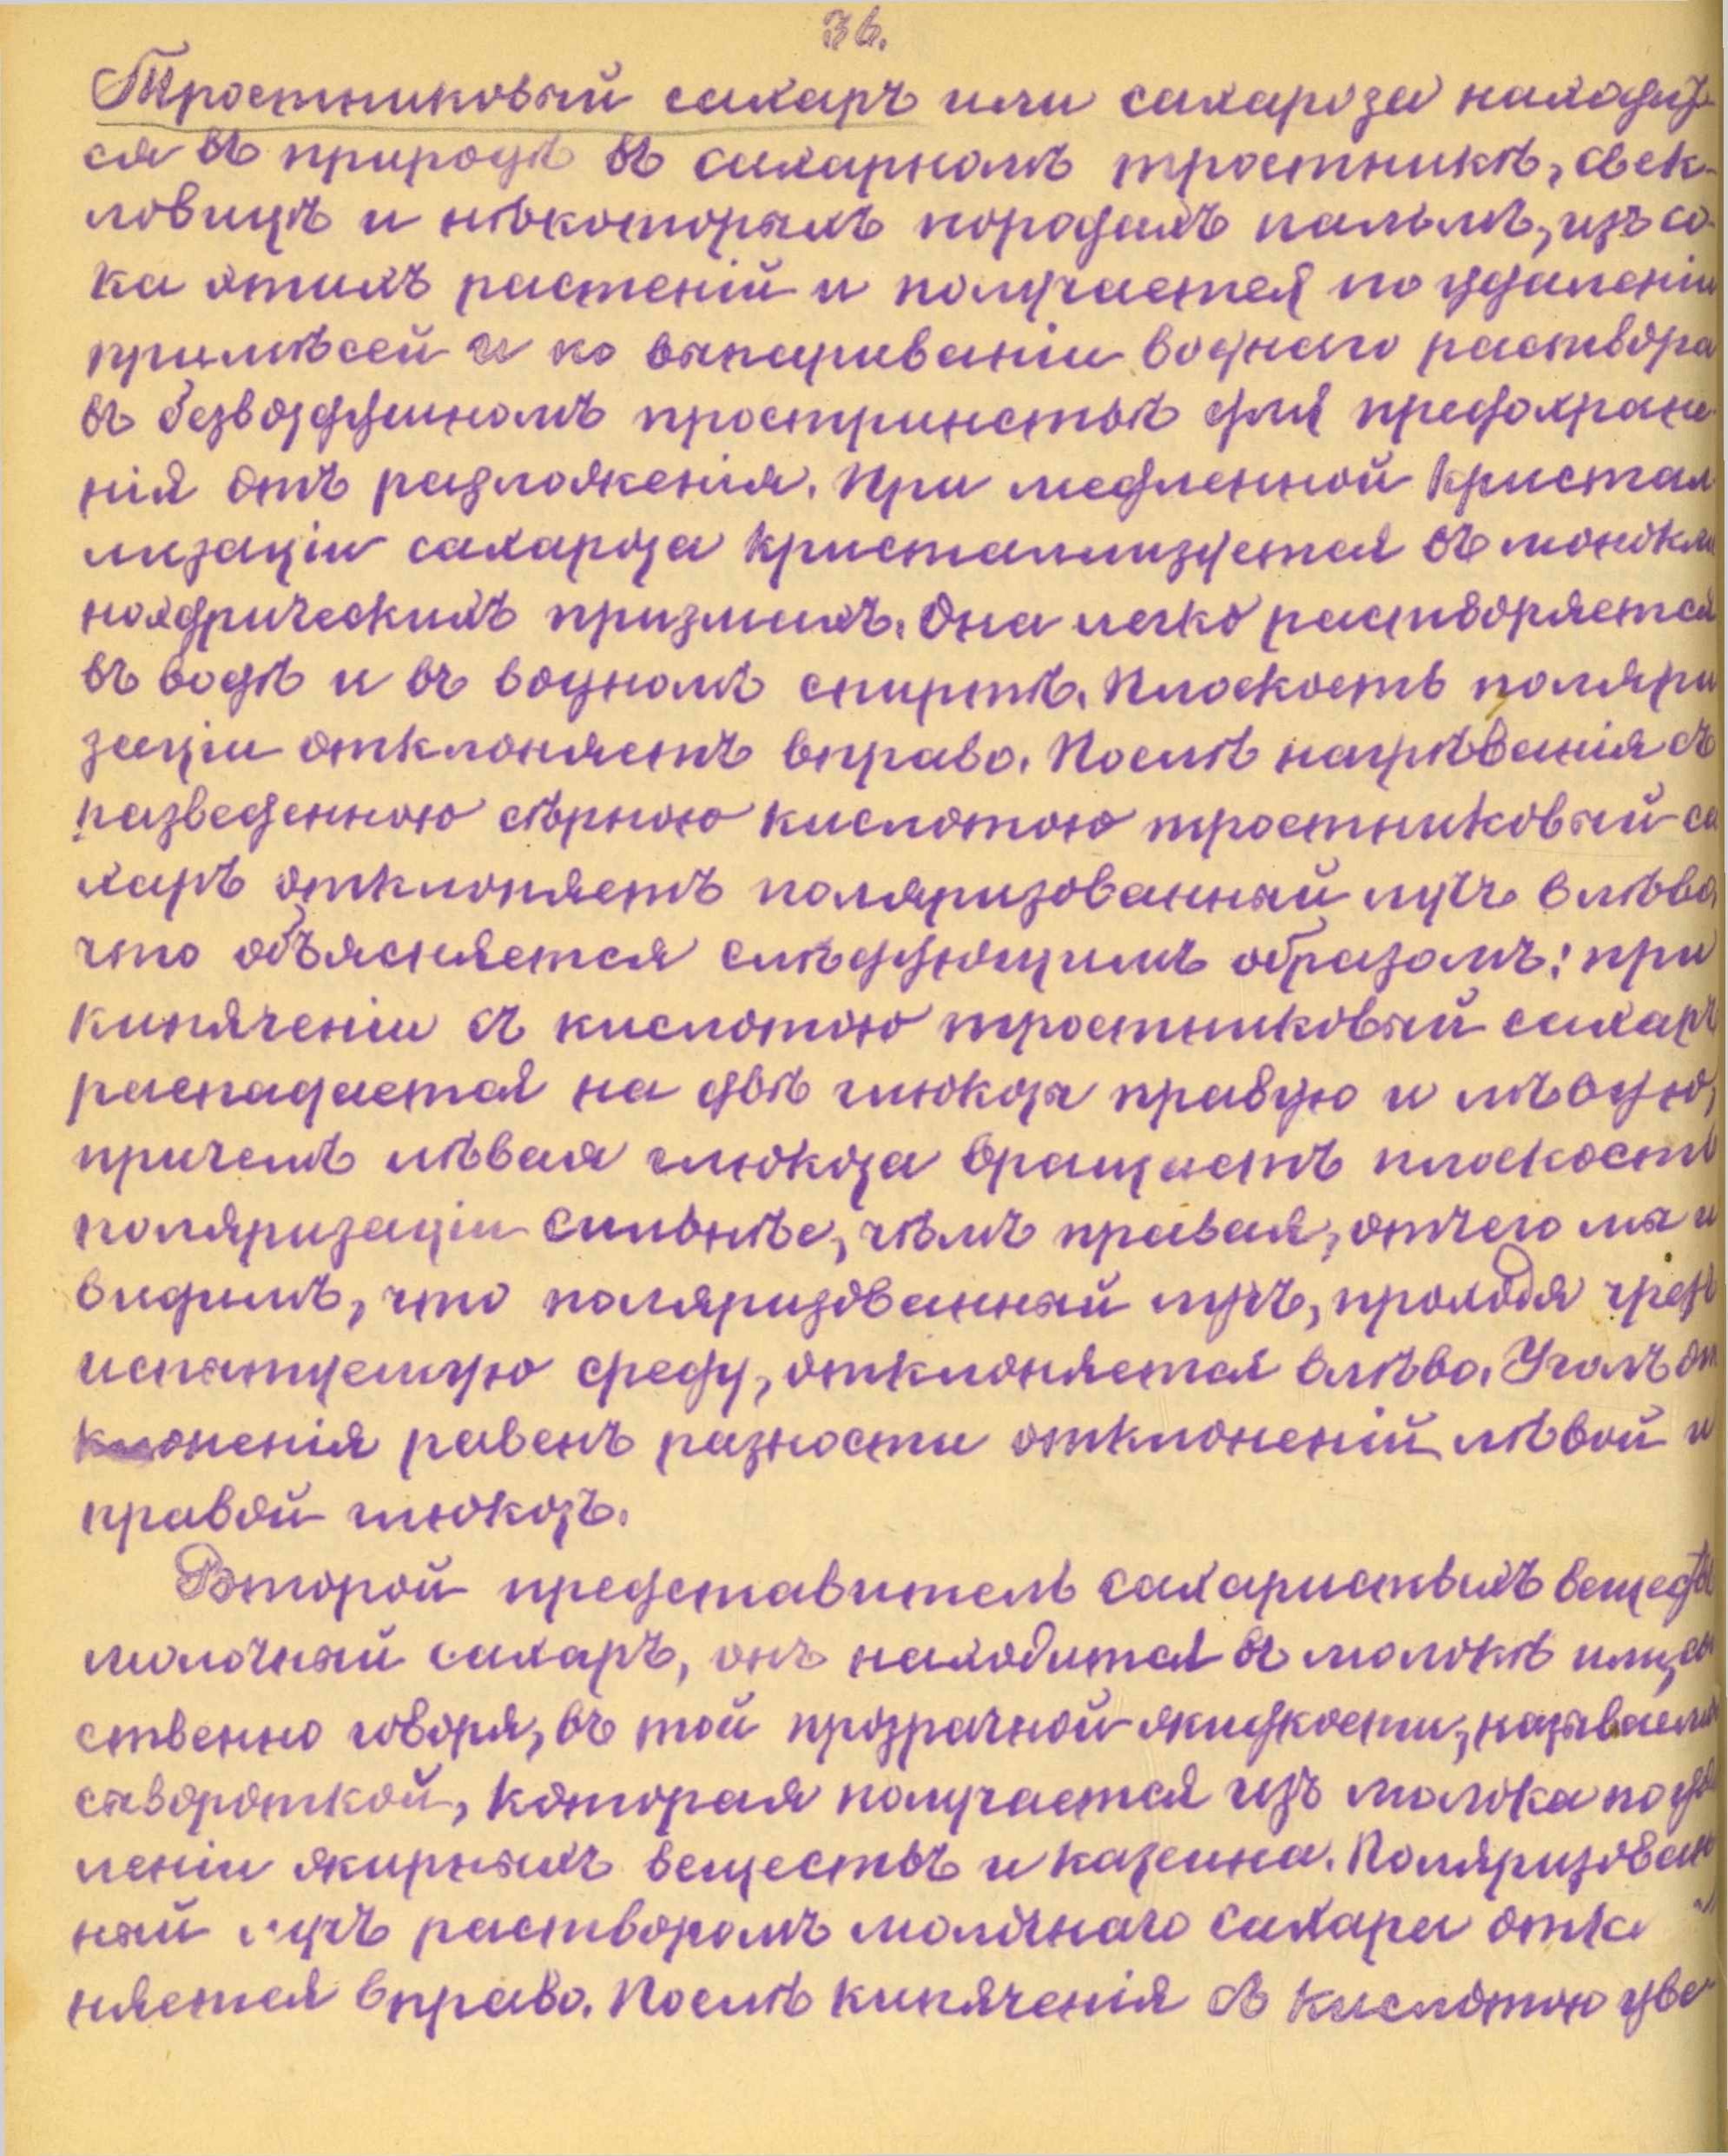 36.
Тростниковый сахаръ или сахароза находит-
ся въ природѣ въ сахарномъ тростникѣ, свек-
ловицѣ и нѣкоторыхъ породахъ пальмъ, изъ со-
ка этихъ растеній и получается по удаленіи
примѣсей и по выпариваніи воднаго раствора
въ безвоздушномъ пространствѣ для предохране-
нія отъ разложенія. При медленной кристал-
лизаціи сахароза кристаллизуется въ монокли
ноэдрическихъ призмахъ. Она легко растворяется
въ водѣ и въ водномъ спиртѣ. Плоскость поляри
заціи отклоняетъ вправо. Послѣ нагрѣванія съ
разведенною сѣрною кислотою тростниковый са
харъ отклоняетъ поляризованный лучъ влѣво,
что объясняется слѣдующимъ образомъ: при
кипяченіи съ кислотою тростниковый сахаръ
распадается на двѣ глюкозы правую и лѣвую,
причемъ лѣвая глюкоза вращаетъ плоскость
поляризаціи сильнѣе, чѣмъ правая, отчего мы и
видимъ, что поляризованный лучъ, проходя чрезъ
испытуемую среду, отклоняется влѣво. Уголъ от
клоненія равенъ разности отклоненій лѣвой и
правой глюкозъ.
Второй представитель сахаристыхъ веществъ
молочный сахаръ, онъ находится въ молокѣ или, со
ственно говоря, въ той прозрачной жидкости, называемой
сывороткой, которая получается изъ молока по уда
леніи жирныхъ веществъ и казеина. Поляризован
ный лучъ растворомъ молочнаго сахара откл
няется вправо. Послѣ кипяченія съ кислотою уве